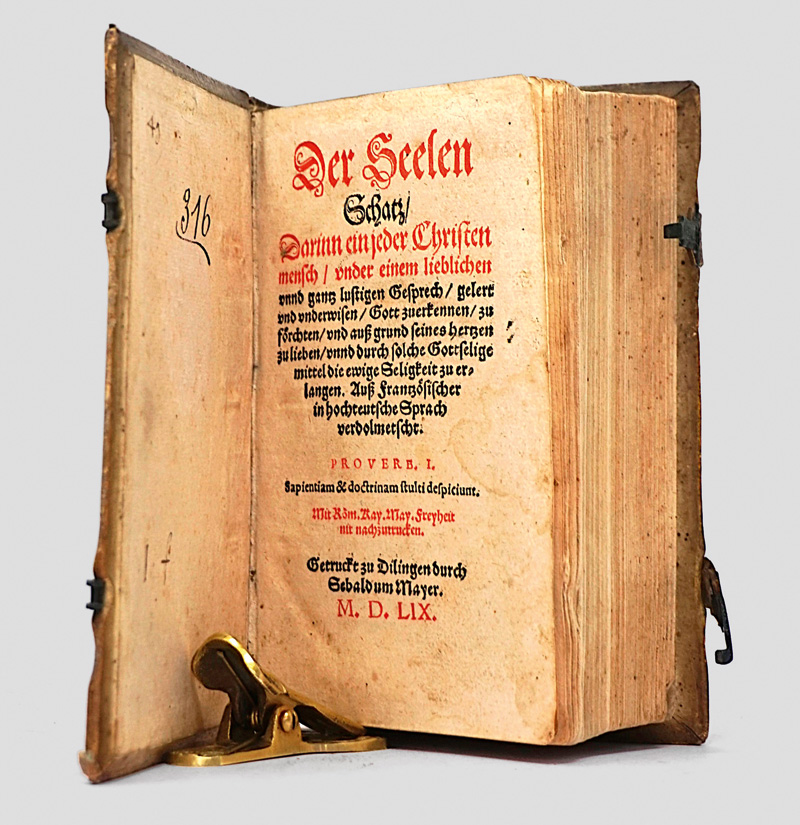 316
Der Seelen
Schatz/
Darinn ein jeder Christen
mensch / vnder einem lieblichen
vnnd gantz lustigen Gesprech / gelert
vnd vnderwisen / Gott zuerkennen / zu
förchten / vnd auß grund seines hertzen
zu lieben / vnnd durch solche Gottselige
mittel die ewige Seligkeit zu er⸗
langen. Auß Frantzösischer
in hochteutsche Sprach
verdolmetscht.
PROVERB. I.
Sapientiam & doctrinam stulti despiciunt.
Mit Röm. Kay. May. Freyheit
nit nachzutrucken.
Getruckt zu Dilingen durch
Sebaldum Mayer.
M. D. LIX.